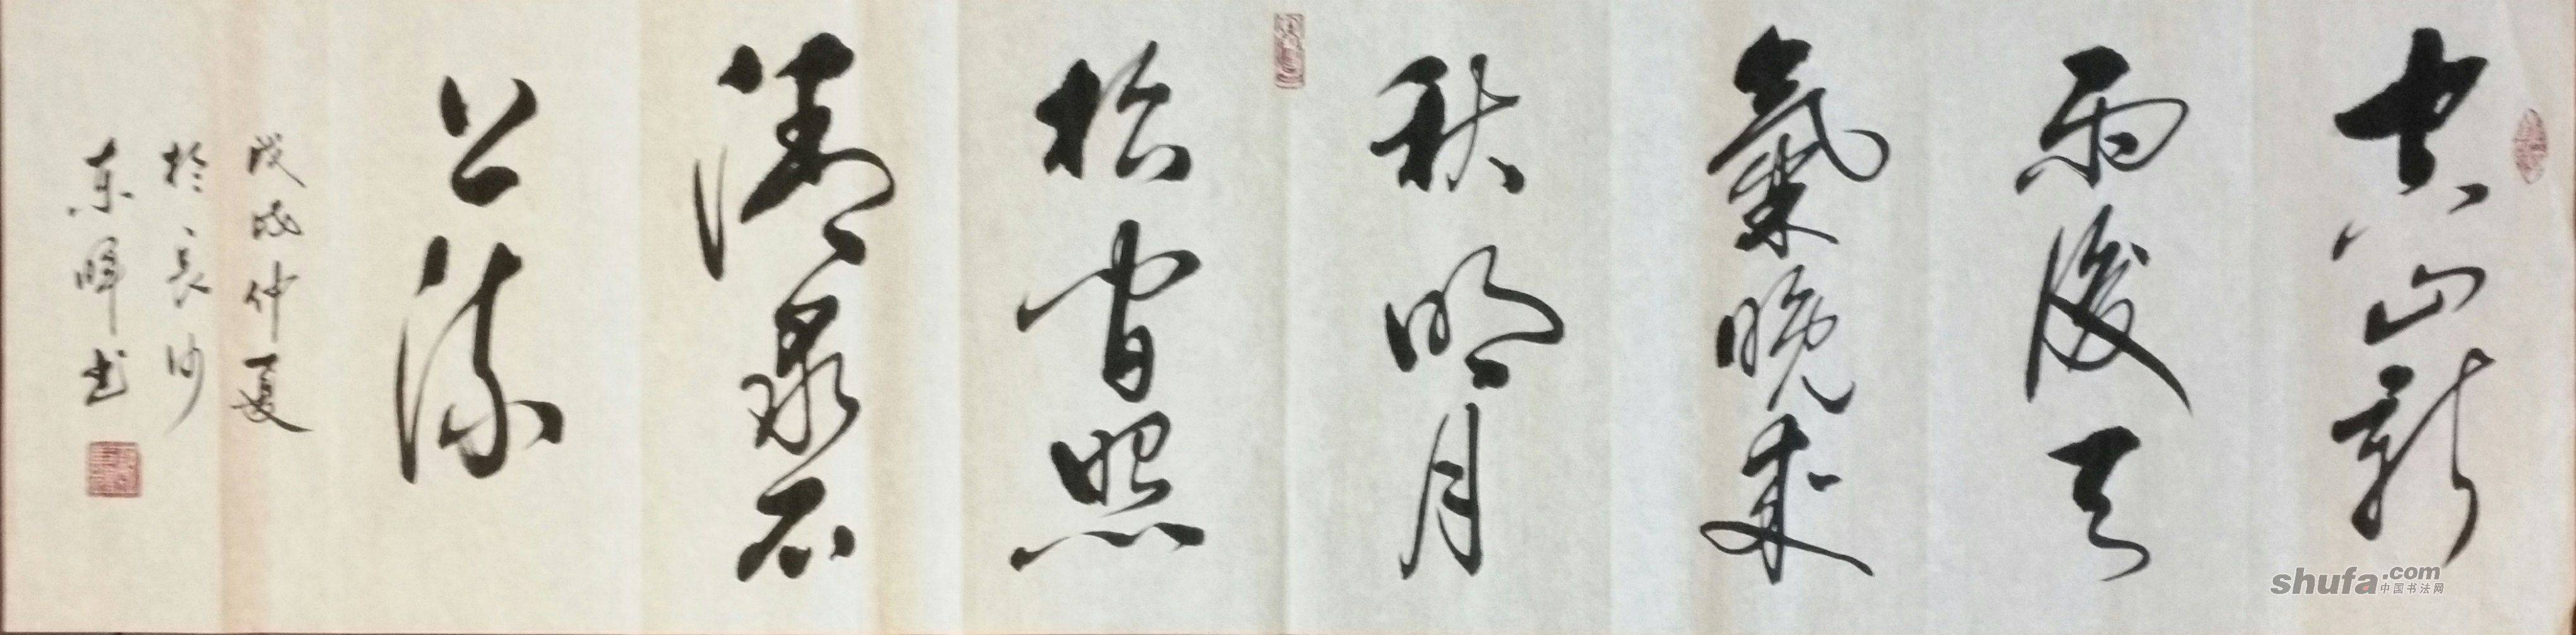 空山新
雨後天
氣晚來
秋明月
松間照
清泉石
上流
戊戌仲夏
於長沙
東暉书
shufa.com
中国书法网